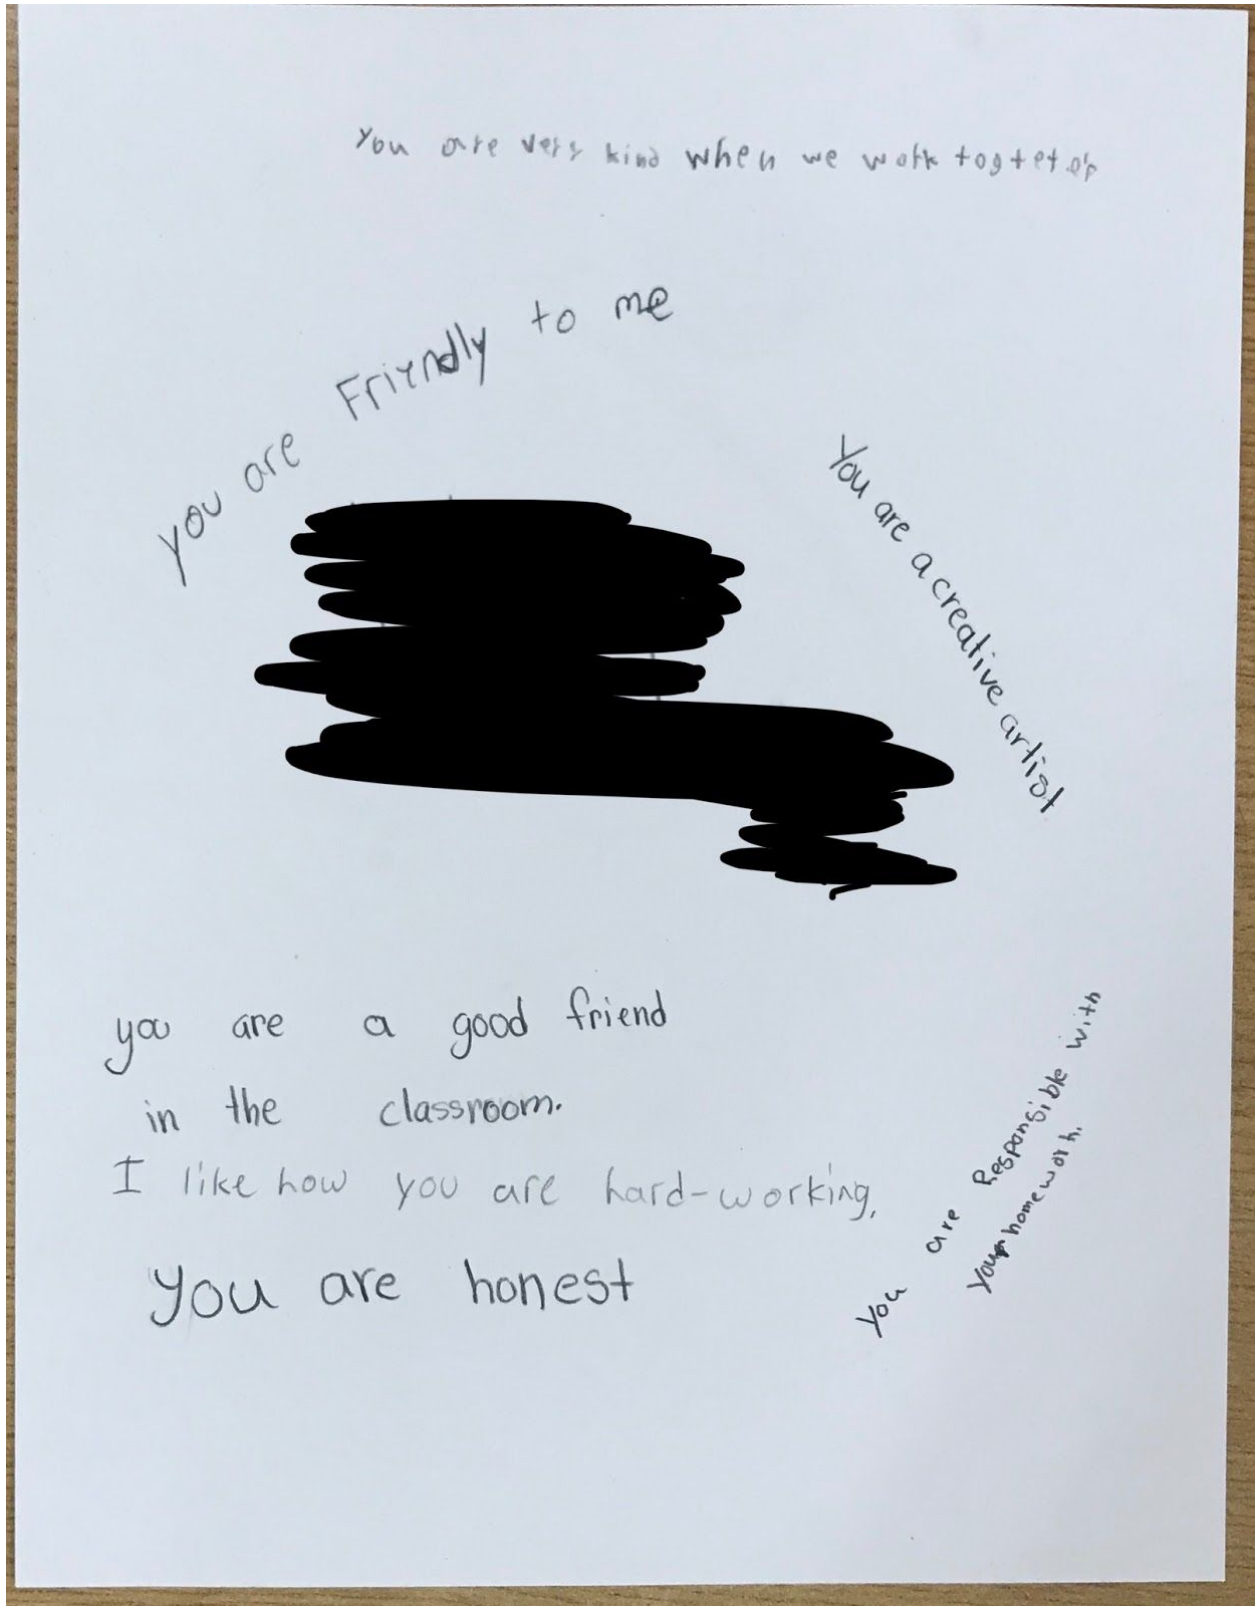 You are very kind when we work togteter
you are Friendly to me
You are a creative artist
you are a good friend
in the classroom.
I like how you are hard-working.
You are Responsible with
your homework.
You are honest